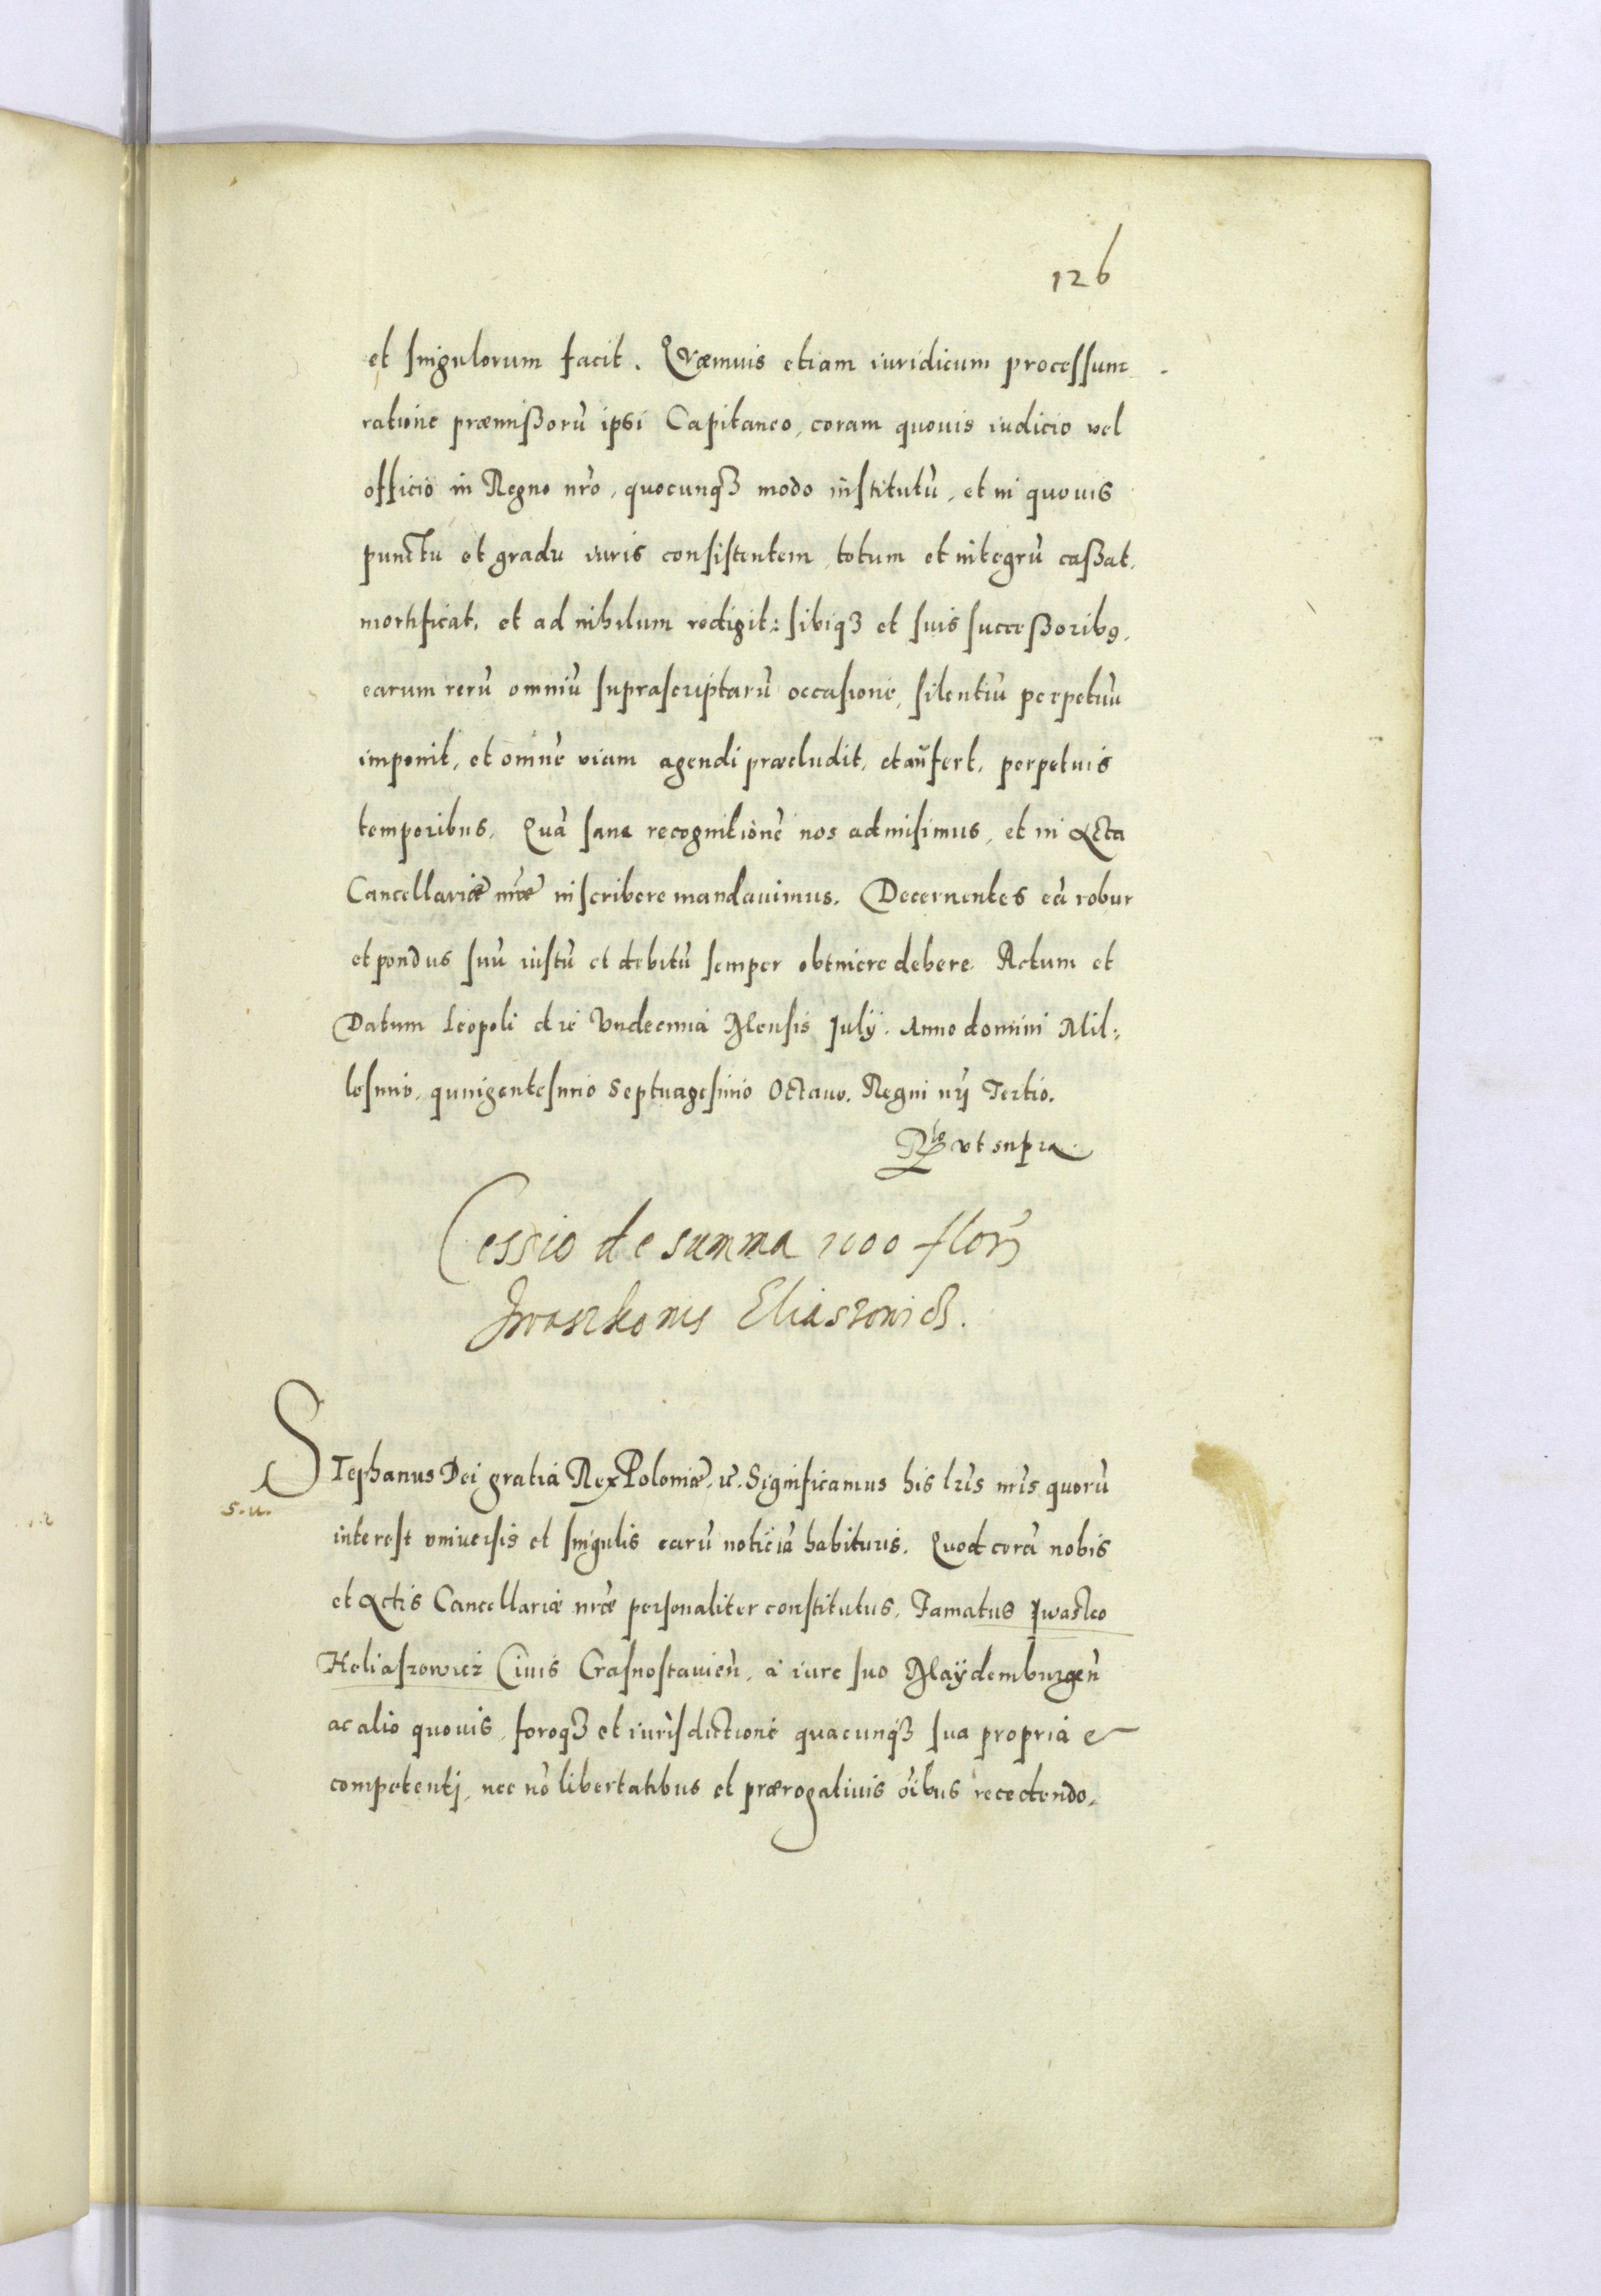 126
et singulorum facit. Quæmuis etiam iuridicum processum
ratione præmißorū ipsi Capitaneo, coram quouis iudicio vel
officio in Regno nrō, quocunqꝫ modo institutū, et in quouis
punctu et gradu iuris consistentem, totum et integrū caßat,
mortificat, et ad nihilum redigit: sibiqꝫ et suis succeßoribꝰ,
earum rerū omniū suprascriptarū occasione, silentiū perpetuū
imponit, et omnē viam agendi præcludit, et aufert, perpetuis
temporibus. Quā sane recognitionē nos admisimus, et in Acta
Cancellariæ nræ inscribere mandauimus. Decernentes eā robur
et pondus suū iustū et debitū semper obtinere debere. Actum et
Datum Leopoli die Vndecima Mensis Julÿ. Anno domini Mil:
lesimo, quingentesimo Septuagesimo Octauo. Regni nrĩ Tertio.
Rtõ vt supra
Cessio de summa 1000 florꝭ
Jwaszkonis Eliaszowicz.
STephanus Dei gratia Rex Poloniæ, ꝛc. Significamus his lr̃is nr̃is quorū
s.u.
interest vniuersis et singulis earū noticiā habituris. Quod corā nobis
et Actis Cancellariæ nræ personaliter constitutus, Famatus Jwasko
Heliaszowicz Ciuis Crasnostauien̄, a iure suo Maÿdemburgen̄
ac alio quouis, foroqꝫ et iurisdictione quacunqꝫ sua propria &
competentj, nec nō libertatibus et prærogatiuis oībus recedendo,